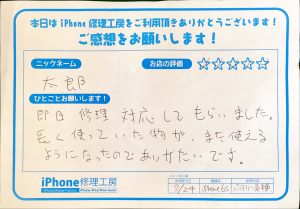 本日は iPhone 修理工房をご利用頂きありがとうございます!
ご感想をお願いします!
ニックネーム
お店の評価 ☆☆☆☆☆
太郎
ひとことお願いします!
即日修理対応してもらいました。
長く使っていた物が、また使える
ようになったのでありがたいです。
iPhone修理工房
修理受付日 機種名 修理内容
11/24 iPhone6S バッテリー交換